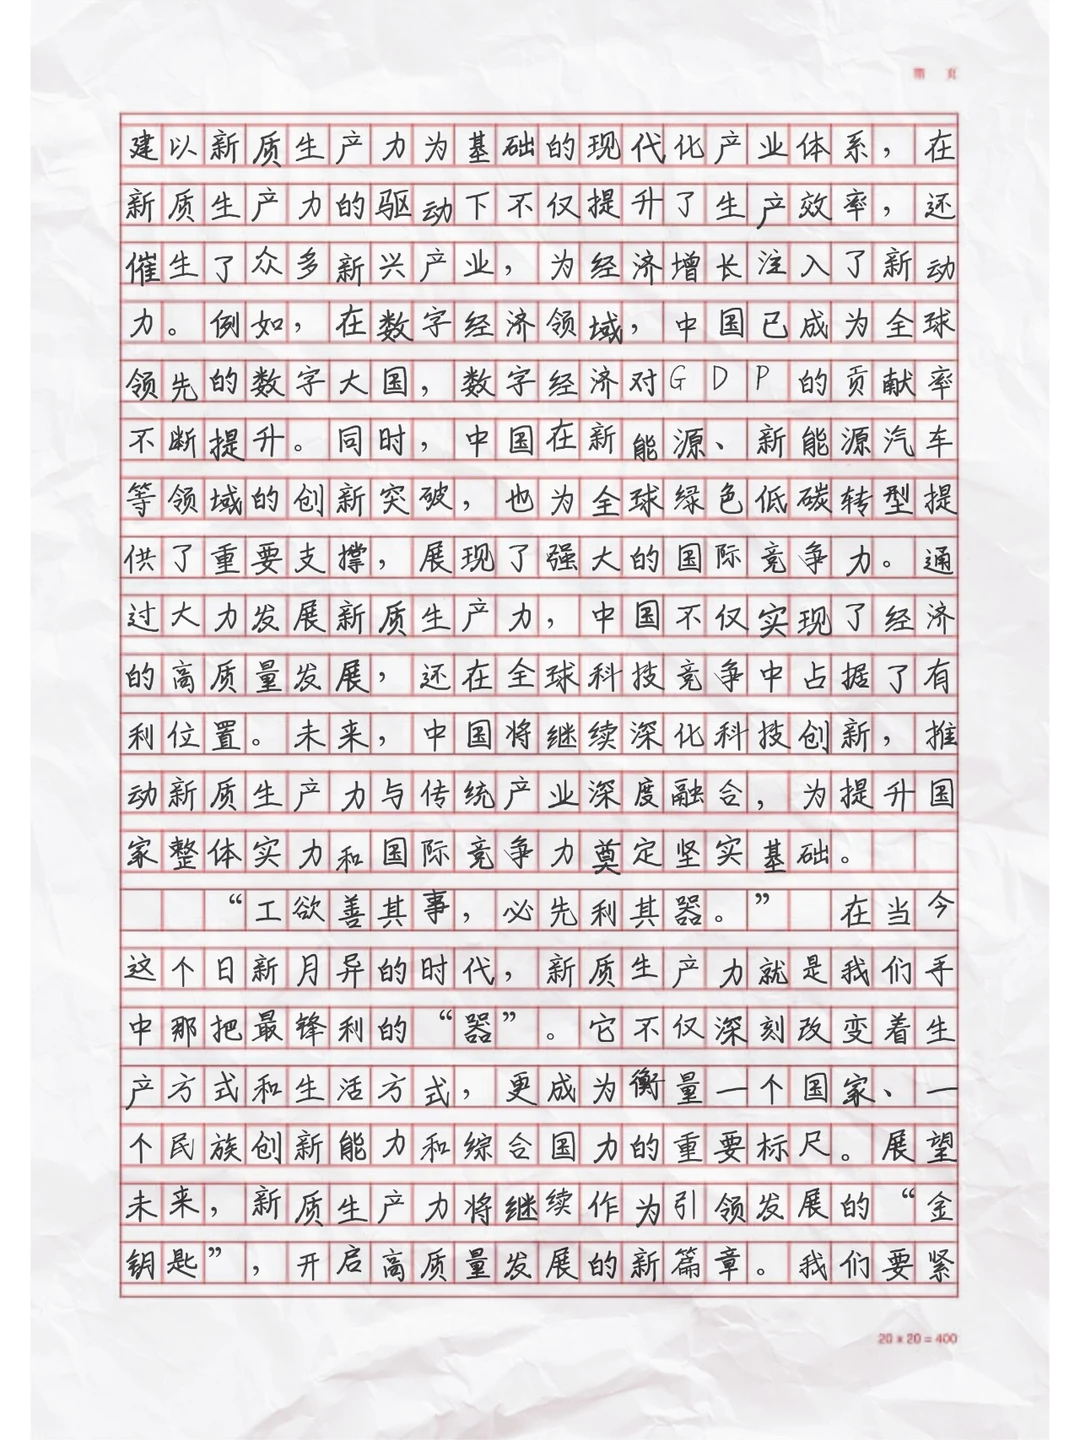 第 页
建以新质生产力为基础的现代化产业体系，在
新质生产力的驱动下不仅提升了生产效率，还
催生了众多新兴产业，为经济增长注入了新动
力。例如，在数字经济领域，中国已成为全球
领先的数字大国，数字经济对GDP的贡献率
不断提升。同时，中国在新能源、新能源汽车
等领域的创新突破，也为全球绿色低碳转型提
供了重要支撑，展现了强大的国际竞争力。通
过大力发展新质生产力，中国不仅实现了经济
的高质量发展，还在全球科技竞争中占据了有
利位置。未来，中国将继续深化科技创新，推
动新质生产力与传统产业深度融合，为提升国
家整体实力和国际竞争力奠定坚实基础。
“工欲善其事，必先利其器。” 在当今
这个日新月异的时代，新质生产力就是我们手
中那把最锋利的“器”。它不仅深刻改变着生
产方式和生活方式，更成为衡量一个国家、一
个民族创新能力和综合国力的重要标尺。展望
未来，新质生产力将继续作为引领发展的“金
钥匙”，开启高质量发展的新篇章。我们要紧
20×20=400